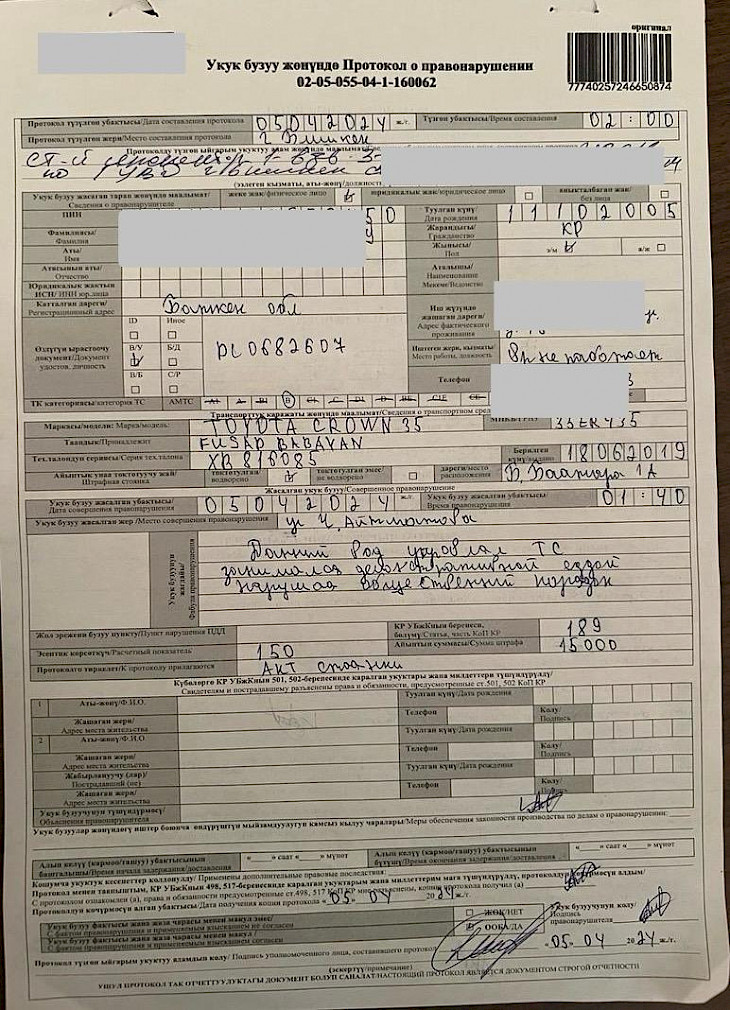 оригинал
Укук бузуу жөнүндө Протокол о правонарушении
02-05-055-04-1-160062
77740257246650874
Протокол түзүлгөн убактысы/Дата составления протокола 05042024 ж/г. Түзүлгөн убактысы/Время составления 02:00
Протокол түзүлгөн жери/Место составления протокола г. Бишкек
(ээлеген кызматы, аты-жөнү/должность
Укук бузуу жасаган тарап жөнүндө маалымат/ жеке жак/физическое лицо юридикалык жак/юридическое лицо аныкталбаган жак/
Сведения о правонарушителе без лица
ПИН 50 Туулган күнү/ 11102005
Дата рождения
Фамилиясы/ У Жарандыгы/ КР
Фамилия Гражданство
Аты/ Жынысы/ э/м а/ж
Имя Пол
Атасынын аты/ Аталышы/
Отчество Наименование
Юридикалык жактын Мекеме/Ведомство
ИСН/ ИНН юр.лица
Катталган дареги/ Баткен обл
Регистрационный адрес
Иш жүзүндө
жашаган дареги/
Адрес фактического
проживания
ID Иное
Өздүгүн ырастоочу В/У Б/Д DL0682607
документ/Документ
удостов. личность В/Б С/Р
Иштеген жери, кызматы/ Вр не работает
Место работы, должность
Телефон 3
ТК категориясы/категория ТС АМТС A1 A B1 B C1 C D1 D BE C1E CE
Транспорттук каражаты жөнүндө маалымат/Сведения о транспортном сред
Маркасы/модели: Марка/модель: TOYOTA CROWN 35
Таандык/Принадлежит FUSAD BABAYAN
Тех.талондун сериясы/Серия тех.талона XR816085 Берилген 18062019
Айыптык унаа токтотуучу жай/ токтотулган/ токтотулган эмес/ дареги/место
Штрафная стоянка водворено не водворено расположения Б. Баатыра 1А
Жасалган укук бузуу/Совершенное правонарушение
Укук бузуу жасалган убактысы/ 05042024 ж/г. Укук бузуу жасалган убактысы/ 01:40
Дата совершения правонарушения Время правонарушения
Укук бузуу жасалган жер /Место совершения правонарушения ул Ч. Айтматова
Укук бузуунун жагдайы/
Фабула правонарушения
Данный вод управлял ТС
занимался демонстративной ездой
нарушая общественный порядок
Жол эрежени бузуу пункту/Пункт нарушения ПДД КР УБжКнын беренеси, 189
бөлүмү/Статья, часть КоП КР
Эсептик көрсөткүч/Расчетный показатель 150 Айыптын суммасы/Сумма штрафа 15000
Протоколго тиркелет/К протоколу прилагаются АКТ стоянки
Күбөлөргө КР УБжКнын 501, 502-беренесинде каралган укуктары жана милдеттери түшүндүрүлдү/
Свидетелям и пострадавшему разъяснены права и обязанности, предусмотренные ст.501, 502 КоП КР
1 Аты-жөнү/Ф.И.О. Туулган күнү/Дата рождения
Жашаган жери/ Телефон Колу/
Адрес места жительства Подпись
2 Аты-жөнү/Ф.И.О Туулган күнү/Дата рождения
Жашаган жери/ Телефон Колу/
Адрес места жительства Подпись
Жабырлануучу (лар)/ Туулган күнү/Дата рождения
Пострадавший (не)
Жашаган жери/ Телефон Колу/
Адрес места жительства Подпись
Укук бузуучунун түшүндүрмөсү/
Объяснения правонарушителя
Укук бузуулар жөнүндөгү иштер боюнча өндүрүштүн мыйзамдуулугун камсыз кылуу чаралары/Меры обеспечения законности производства по делам о правонарушении:
Алып келүү (кармоо/ташуу) убактысынын « » саат « » мүнөт Алып келүү (кармоо/ташуу) убактысынын « » саат « » мүнөт
башталышы/Время начала задержания/доставления бүтүшү/Время окончания задержания/доставления
Кошумча укуктук кесепеттер колдонулду/ Применены дополнительные правовые последствия:
Протокол менен тааныштым, КР УБжКнын 498, 517-беренесинде каралган укуктарым жана милдеттерим мага түшүндүрүлдү, протоколдун көчүрмөсүн алдым/
С протоколом ознакомлен (а), права и обязанности предусмотренные ст.498, 517 КоП КР мне разъяснены, копию протокола получил (а)
Протоколдун көчүрмөсүн алган убактысы/Дата получения копии протокола «05» 04 2024 ж/г.
Укук бузуу фактысы жана жаза чарасы менен макул эмес/ ЖОК/НЕТ
С фактом правонарушения и применяемым взысканием не согласен
Укук бузуу фактысы жана жаза чарасы менен макул / ООБА/ДА
С фактом правонарушения и применяемым взысканием согласен
Укук бузуучунун колу/
Подпись
правонарушителя
Протокол түзгөн ыйгарым укуктуу адамдын колу/ Подпись уполномоченного лица, составившего протокол «05» 04 2024 ж/г.
(эскертүү/примечание)
УШУЛ ПРОТОКОЛ ТАК ОТЧЕТТУУЛУКТАГЫ ДОКУМЕНТ БОЛУП САНАЛАТ/НАСТОЯЩИЙ ПРОТОКОЛ ЯВЛЯЕТСЯ ДОКУМЕНТОМ СТРОГОЙ ОТЧЕТНОСТИ